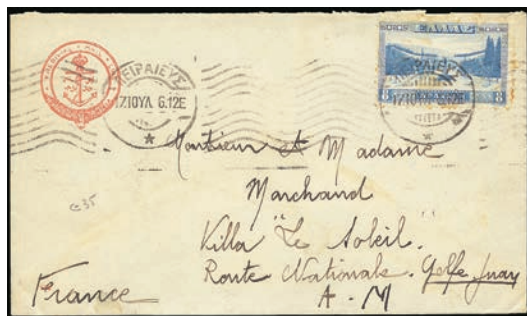 ΕΛΛΑΣ
8 8
ΠΕΙΡΑΙΕΥΣ
17 ΙΟΥΛ 6.12Ε
ΠΕΙΡΑΙΕΥΣ
17 ΙΟΥΛ 6.12Ε
Monsieur et Madame
Marchand
Villa "Le Soleil".
Route Nationale. Golfe Juan
A-M
France